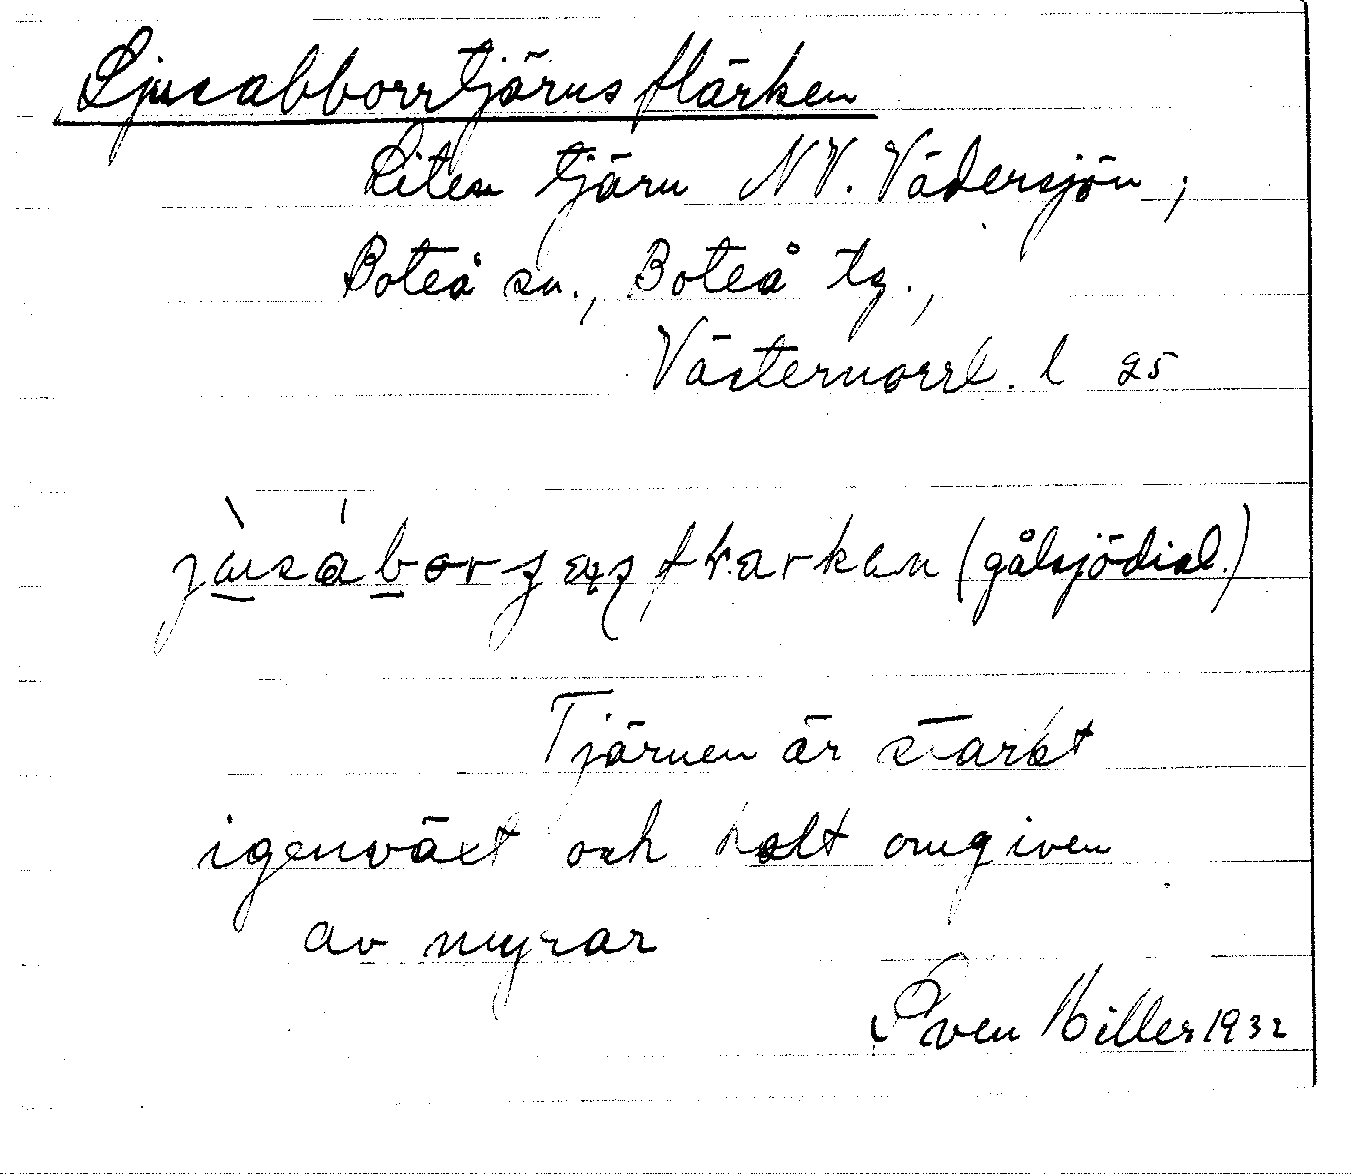 Ljusabborrtjärnsflärken
Liten tjärn NV. Vädersjön,
Boteå sn., Boteå tg.,
Västernorrl. l 25
(gålsjödial.)
Tjärnen är starkt
igenväxt och helt omgiven
av myrar
Sven Hillert 1932